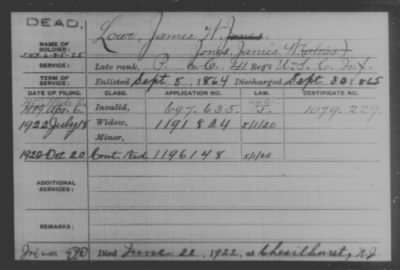 DEAD.
NAME OF SOLDIER:
Lowe, James W. Jones
Jones, James W. (Colored)
SERVICE:
Late rank, P. Co. , 41 Reg't U.S. C. Inf.
TERM OF SERVICE:
Enlisted Sept 8, 1864 Discharged Sept 30, 1865
DATE OF FILING. CLASS. APPLICATION NO. LAW. CERTIFICATE NO.
Invalid, 697.635. 1079.229.
1922 July 18 Widow, 1191824 5/1/20
Minor,
1920 Oct. 20 Cont. Wid. 1196148 5/1/20
ADDITIONAL SERVICES:
REMARKS:
Died June 22, 1922, at Chesilhurst, N.J.